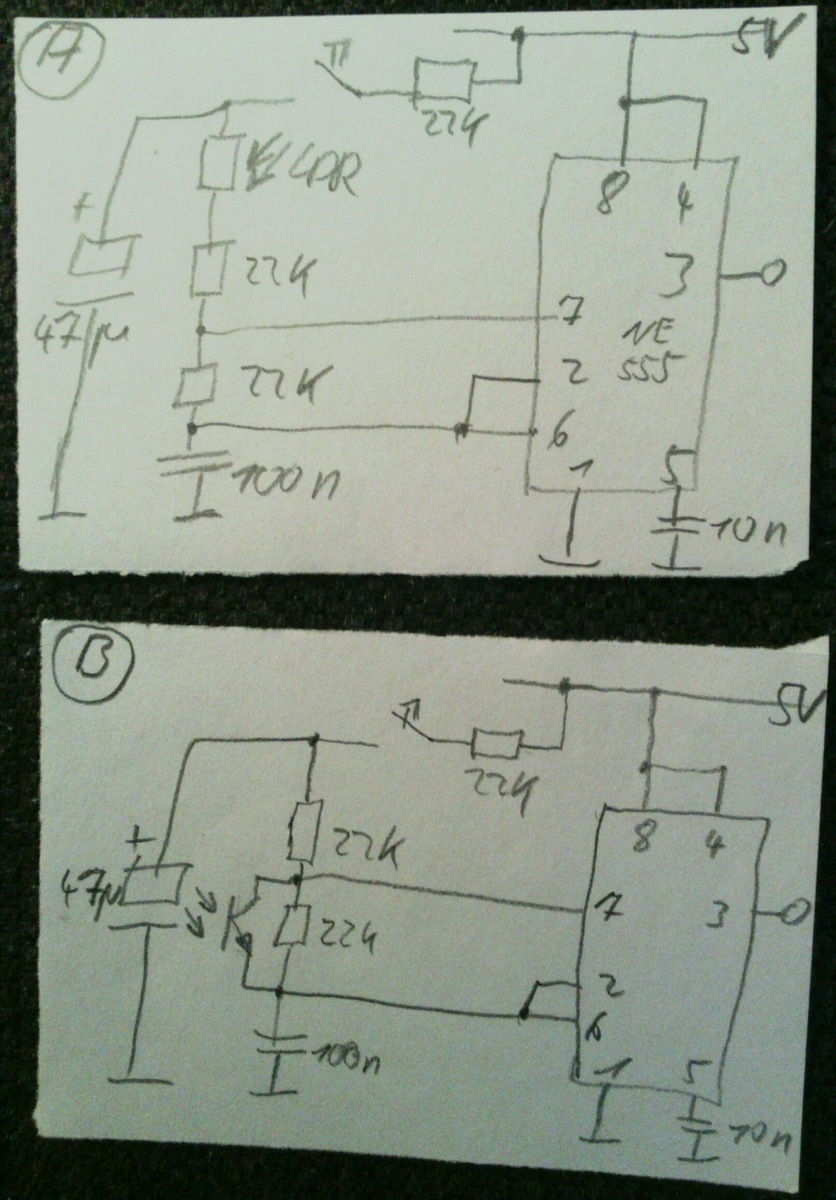 A
5V
22k
LDR
8 4
+
22K
3
47µ
7
NE
2 555
22K
6
100n
1 5
10n
B
5V
22K
8 4
22K
+
47µ
7 3
22k
2
6
100n
1 5
10n